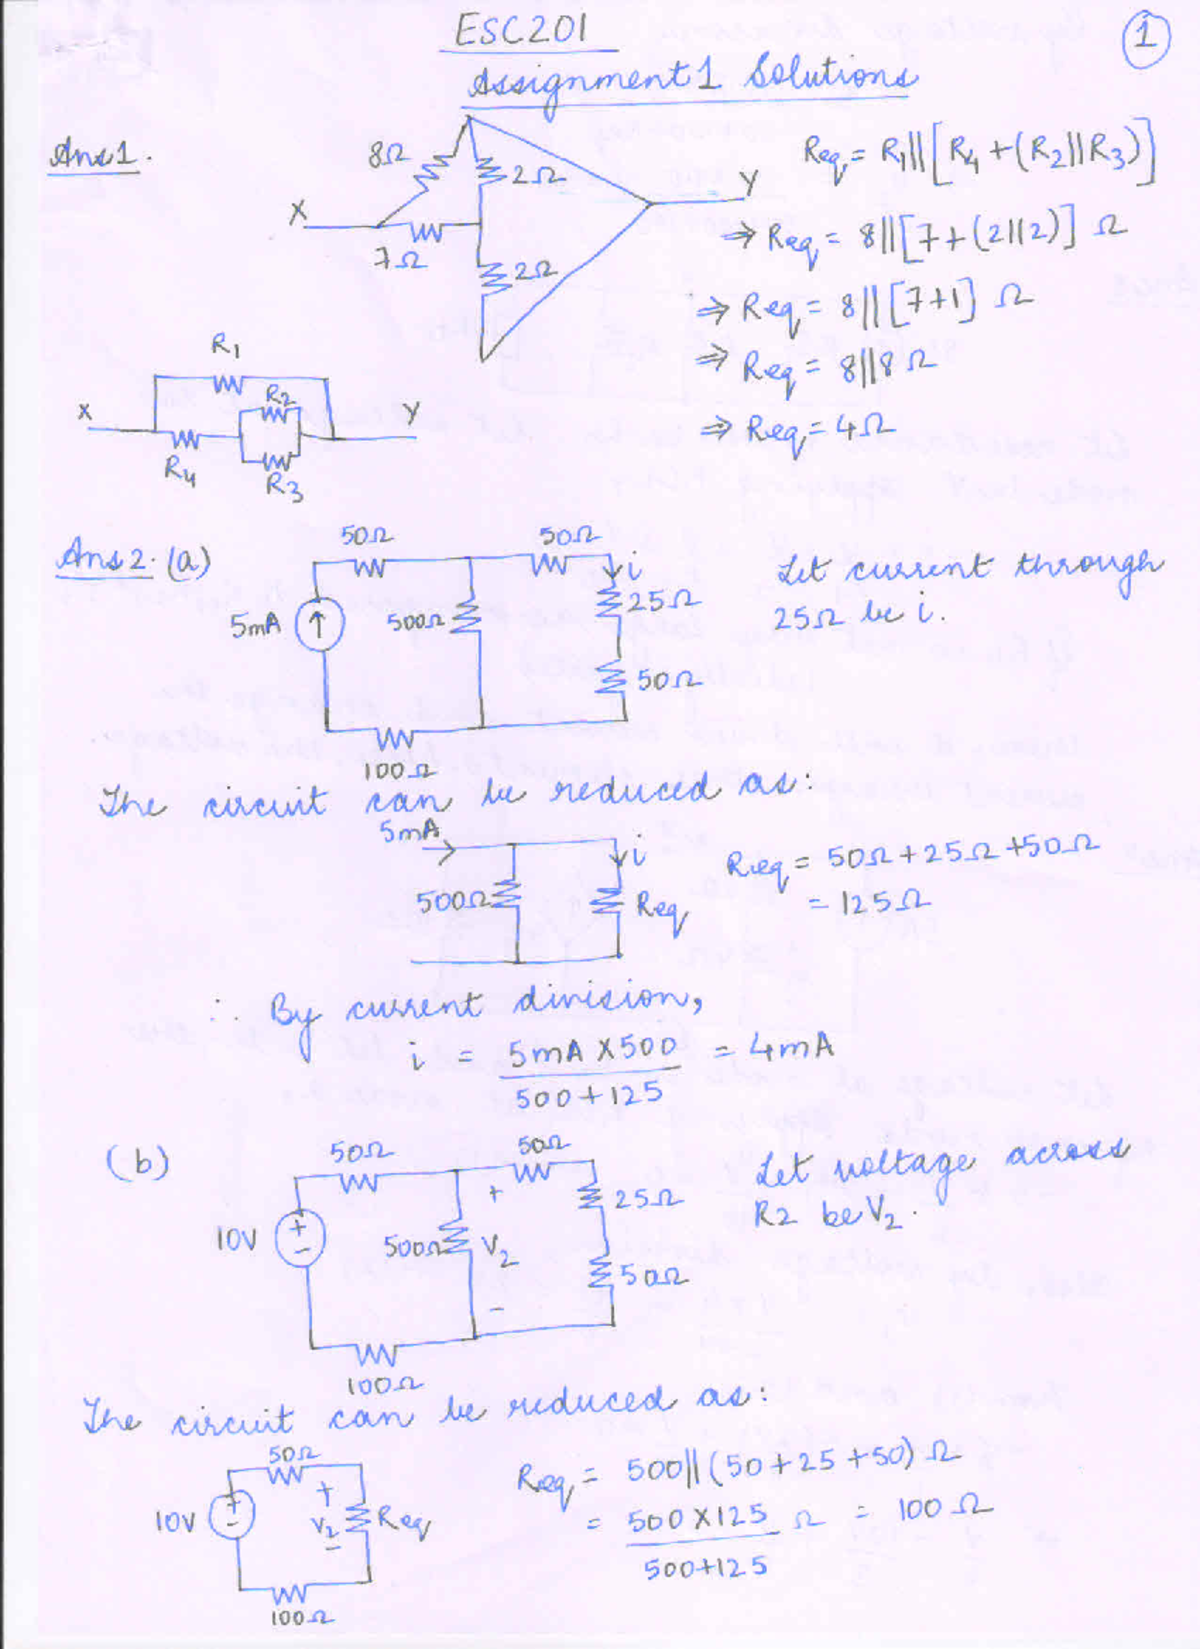 ESC201
1
Assignment 1 Solutions
Ans 1.
8Ω
2Ω
X
Y
7Ω
2Ω
Req = R1||[R4 + (R2||R3)]
⇒ Req = 8||[7+(2||2)] Ω
⇒ Req = 8||[7+1] Ω
⇒ Req = 8||8Ω
⇒ Req = 4Ω
R1
X
R2
Y
R4
R3
Ans 2. (a)
50Ω
50Ω
i
5mA
500Ω
25Ω
50Ω
100Ω
Let current through
25Ω be i.
The circuit can be reduced as:
5mA
i
500Ω
Req
Req = 50Ω + 25Ω + 50Ω
= 125Ω
∴ By current division,
i = 5mA X 500 = 4mA
500 + 125
(b)
50Ω
50Ω
+
25Ω
10V
+
-
500Ω
V2
50Ω
-
100Ω
Let voltage across
R2 be V2.
The circuit can be reduced as:
50Ω
+
10V
+
-
V2
Req
-
100Ω
Req = 500||(50 + 25 + 50) Ω
= 500 X 125 Ω = 100 Ω
500+125